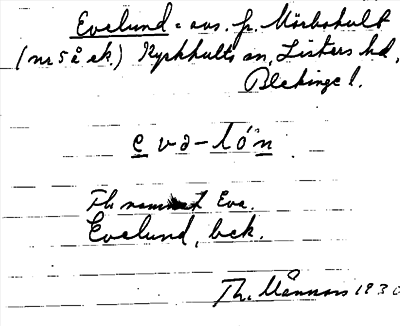 Evelund = avs. fr. Mörbohult
(nr 5 å ek.) Kyrkhults sn, Listers hd,
Blekinge l.
e va-lón
Till namnet Eva.
Evelund, bek.
Th. Månsson 1930